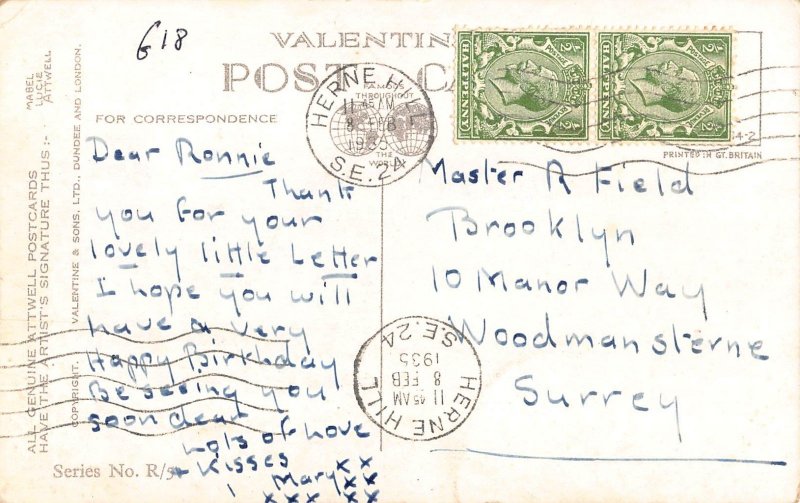 618
VALENTIN
POST CA
FAMOUS
THROUGHOUT
THE
WORLD
FOR CORRESPONDENCE
HERNE HILL
11 45 AM
8 FEB
1935
S.E.24
HALFPENNY
HALFPENNY
4-2
PRINTED IN GT. BRITAIN
Dear Ronnie
Thank
you for your
lovely little Letter
I hope you will
have a very
Happy Birthday
Be seeing you
soon dear
Lots of Love
+ Kisses
Mary x x
x x x x x
Master R Field
Brooklyn
10 Manor Way
Woodmansterne
Surrey
HERNE HILL
11 45 AM
8 FEB
1935
S.E.24
ALL GENUINE ATTWELL POSTCARDS
HAVE THE ARTIST'S SIGNATURE THUS :-
MABEL
LUCIE
ATTWELL
COPYRIGHT. VALENTINE & SONS. LTD., DUNDEE AND LONDON.
Series No. R/5